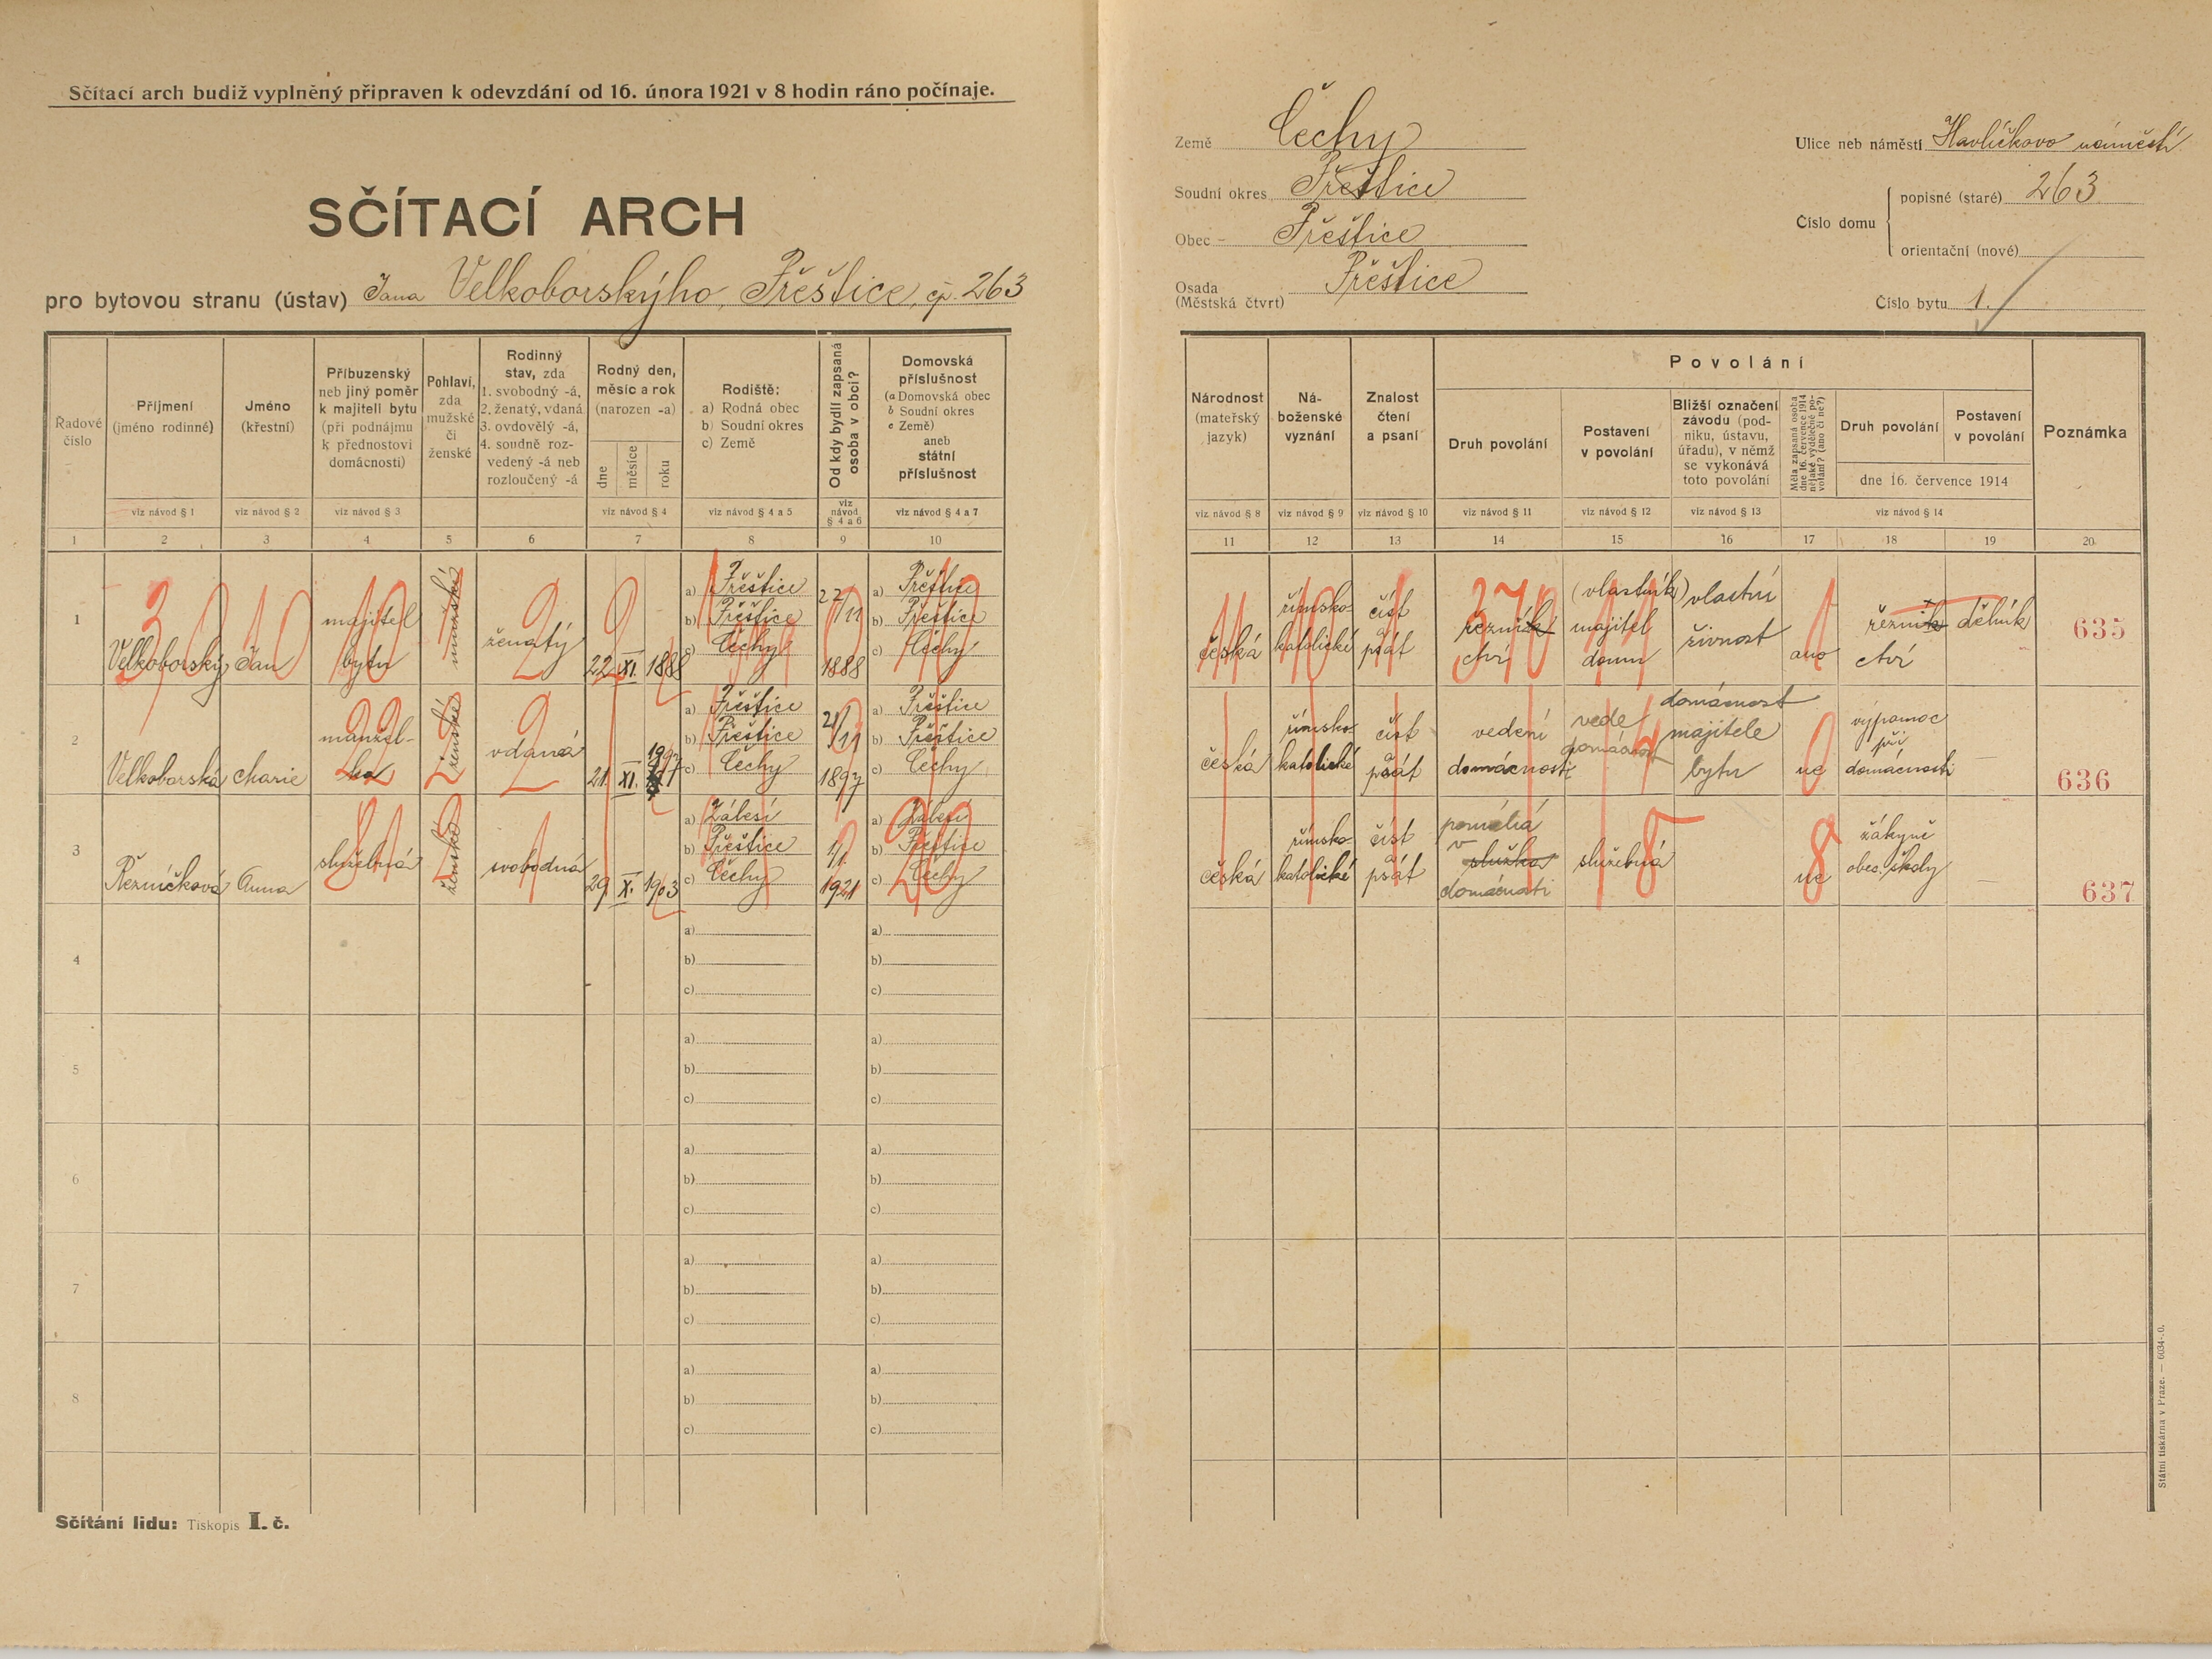 Sčítací arch budiž vyplněný připraven k odevzdání od 16. února 1921 v 8 hodin ráno počínaje.
SČÍTACÍ ARCH
pro bytovou stranu (ústav) Jana Velkoborskýho, Přeštice, čp. 263
Země Čechy
Soudní okres Přeštice
Obec - Přeštice
Osada (Městská čtvrt) Přeštice
Ulice neb náměstí Havlíčkovo náměstí
Číslo domu
popisné (staré) 263
orientační (nové)
Číslo bytu 1.
Řadové číslo
Příjmení (jméno rodinné)
viz návod § 1
Jméno (křestní)
viz návod § 2
Příbuzenský neb jiný poměr k majiteli bytu (při podnájmu k přednostovi domácnosti)
viz návod § 3
Pohlaví, zda mužské či ženské
Rodinný stav, zda
1. svobodný -á,
2. ženatý, vdaná
3. ovdovělý -á,
4. soudně roz-
vedený -á neb
rozloučený -á
Rodný den, měsíc a rok (narozen -a)
dne
měsíce
roku
viz návod § 4
Rodiště:
a) Rodná obec
b) Soudní okres
c) Země
viz návod § 4 a 5
Od kdy bydlí zapsaná osoba v obci?
viz návod § 4 a 6
Domovská příslušnost
(a Domovská obec
b Soudní okres
c Země)
aneb státní příslušnost
viz návod § 4 a 7
Národnost (mateřský jazyk)
viz návod § 8
Ná-
boženské
vyznání
viz návod § 9
Znalost čtení a psaní
viz návod § 10
Povolání
Druh povolání
viz návod § 11
Postavení v povolání
viz návod § 12
Bližší označení závodu (pod-
niku, ústavu, úřadu), v němž se vykonává toto povolání
viz návod § 13
Měla zapsaná osoba dne 16. července 1914 nějaké výdělečné po-
volání? (ano či ne?)
Druh povolání
Postavení v povolání
dne 16. července 1914
viz návod § 14
Poznámka
1 2 3 4 5 6 7 8 9 10
11 12 13 14 15 16 17 18 19 20
1 Velkoborský Jan majitel bytu mužské ženatý 22 XI. 1888
a) Přeštice
b) Přeštice
c) Čechy
22/11 1888
a) Přeštice
b) Přeštice
c) Čechy
česká římsko-katolické číst a psát řeznictví (vlastník) majitel domu vlastní živnost ano řeznictví dělník 635
2 Velkoborská Marie manžel-
ka ženské vdaná 21. XI. 1897
a) Přeštice
b) Přeštice
c) Čechy
21/11 1897
a) Přeštice
b) Přeštice
c) Čechy
česká římsko-katolické číst a psát vedení domácnosti vede domácnost domácnost majitele bytu ne výpomoc při domácnosti — 636
3 Řezníčková Anna služebná ženské svobodná 29 X. 1903
a) Zálesí
b) Přeštice
c) Čechy
1/1. 1921
a) Zálesí
b) Přeštice
c) Čechy
česká římsko-katolické číst a psát pomáhá v služka domácnosti služebná ne žákyně obec. školy — 637
4
a)
b)
c)
a)
b)
c)
5
a)
b)
c)
a)
b)
c)
6
a)
b)
c)
a)
b)
c)
7
a)
b)
c)
a)
b)
c)
8
a)
b)
c)
a)
b)
c)
Sčítání lidu: Tiskopis I. č.
Státní tiskárna v Praze. — 6034-.0.